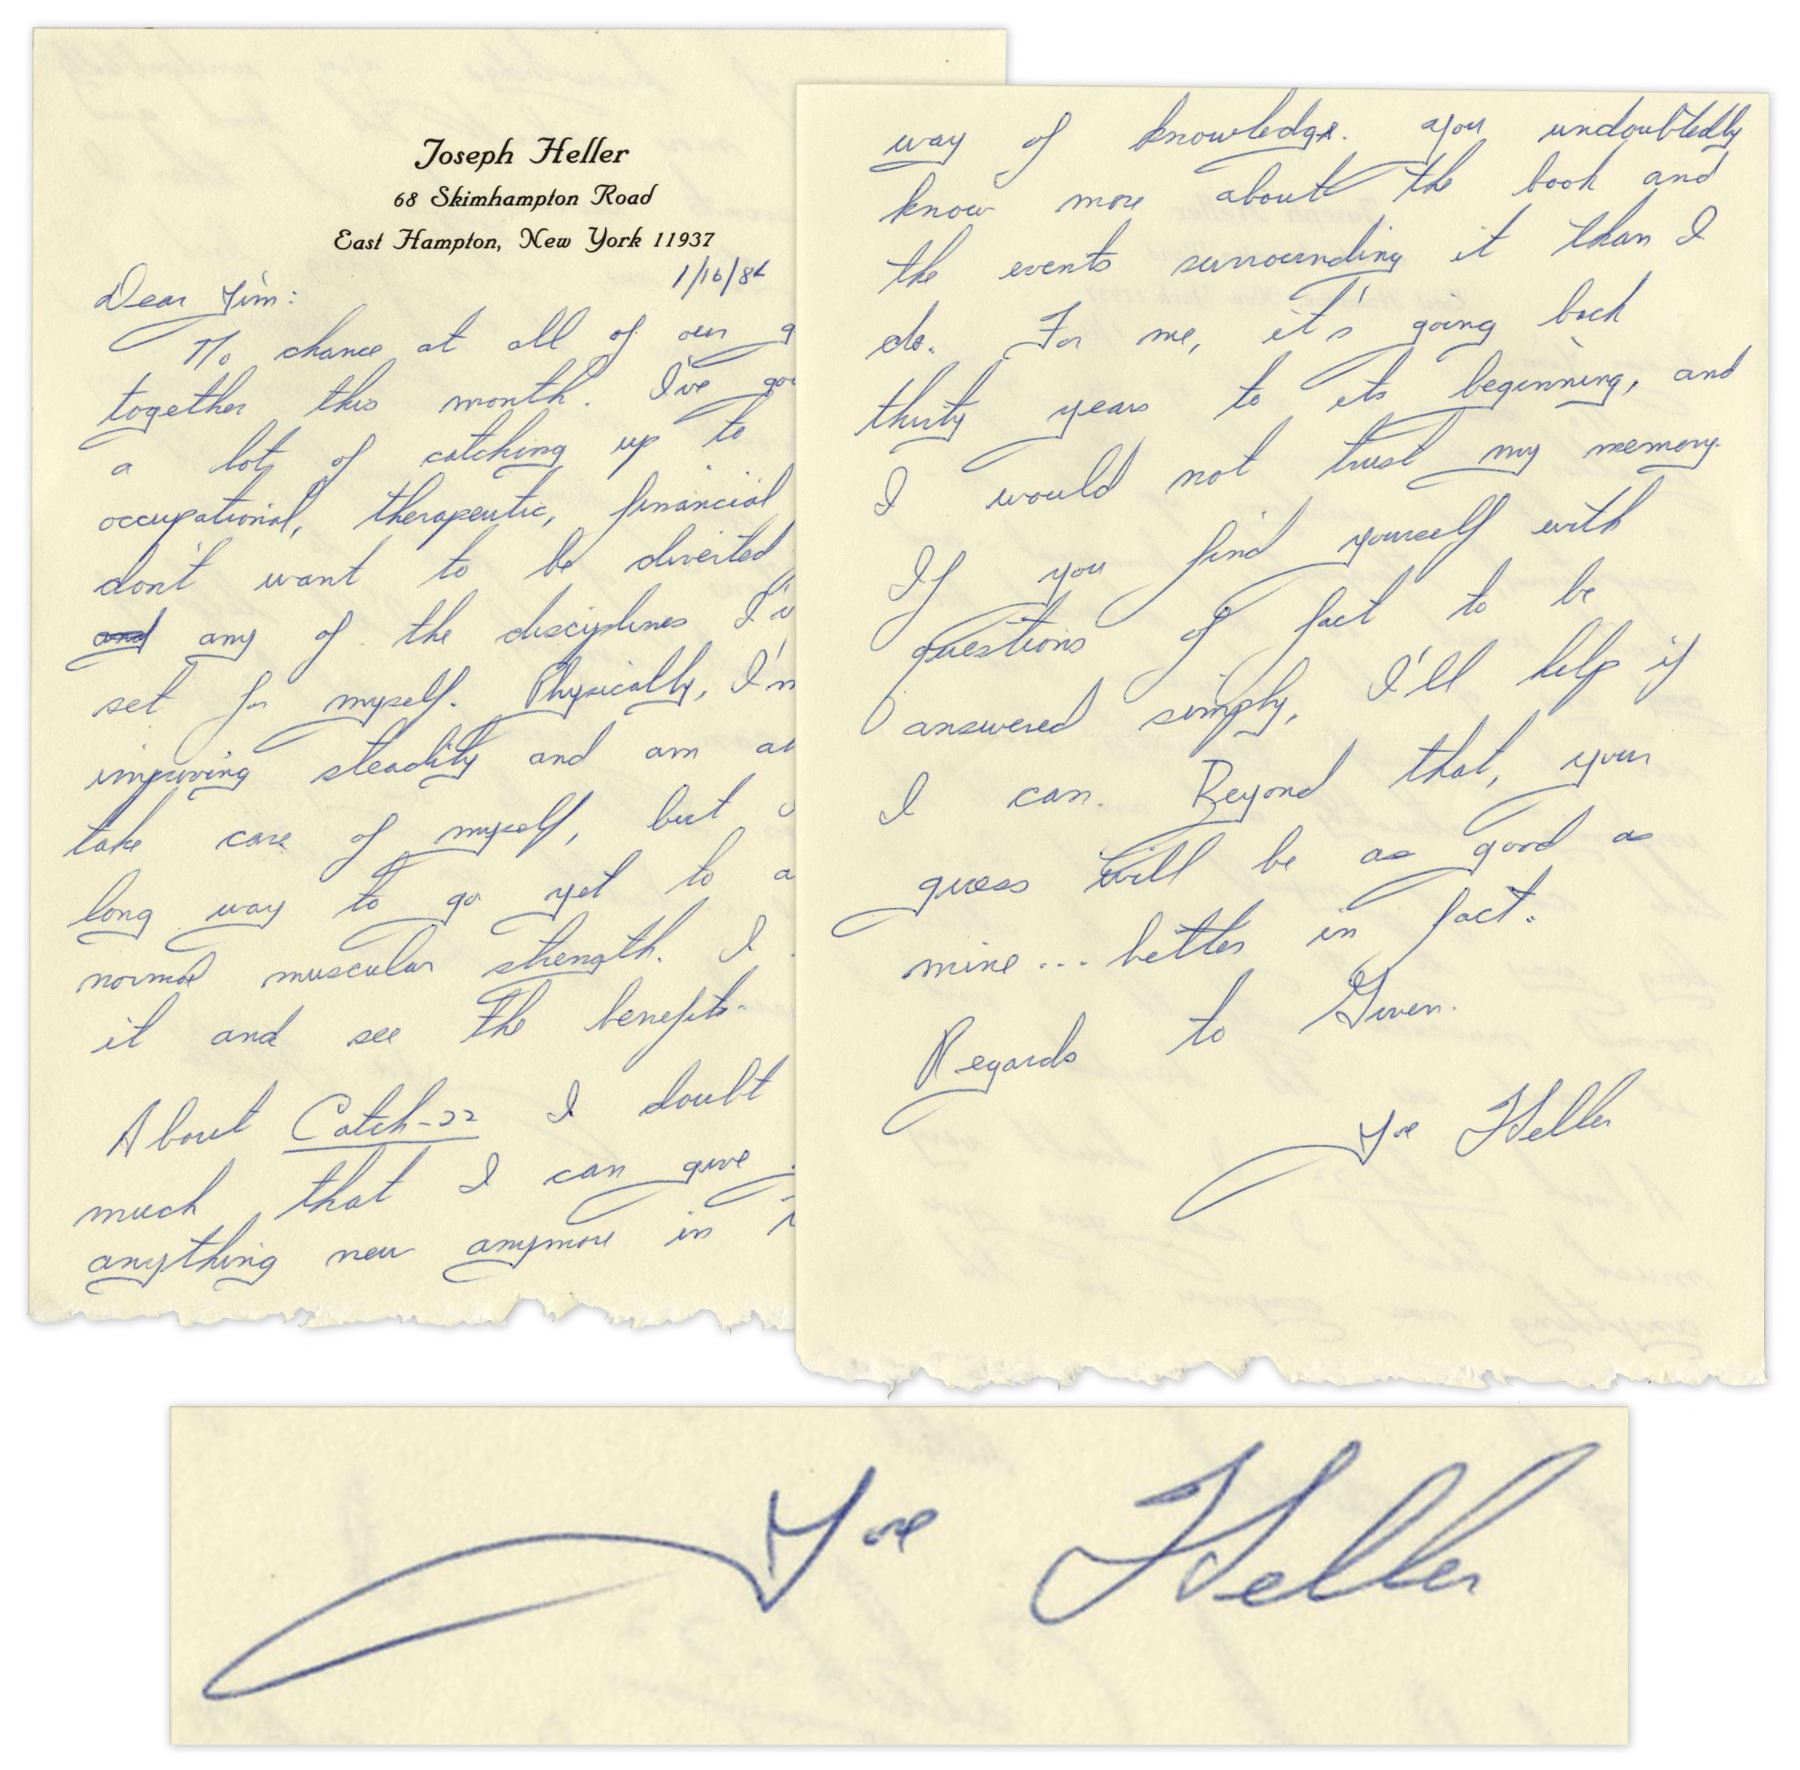 Joseph Heller
68 Skimhampton Road
East Hampton, New York 11937
1/16/82
Dear Jim:
No chance at all of our g
together this month. I've go
a lot of catching up to
occupational, therapeutic, financial
don't want to be diverted
and any of the disciplines I'v
set for myself. Physically, I'm
improving steadily and am ab
take care of myself, but
long way to go yet to a
normal muscular strength. I
it and see the benefits.
About Catch-22 I doubt
much that I can give
anything new anymore in
way of knowledge. You undoubtedly
know more about the book and
the events surrounding it than I
do. For me, it's going back
thirty years to its beginning, and
I would not trust my memory.
If you find yourself with
questions of fact to be
answered simply, I'll help if
I can. Beyond that, your
guess will be as good as
mine... better in fact.
Regards to Gwen.
Joe Heller
Joe Heller